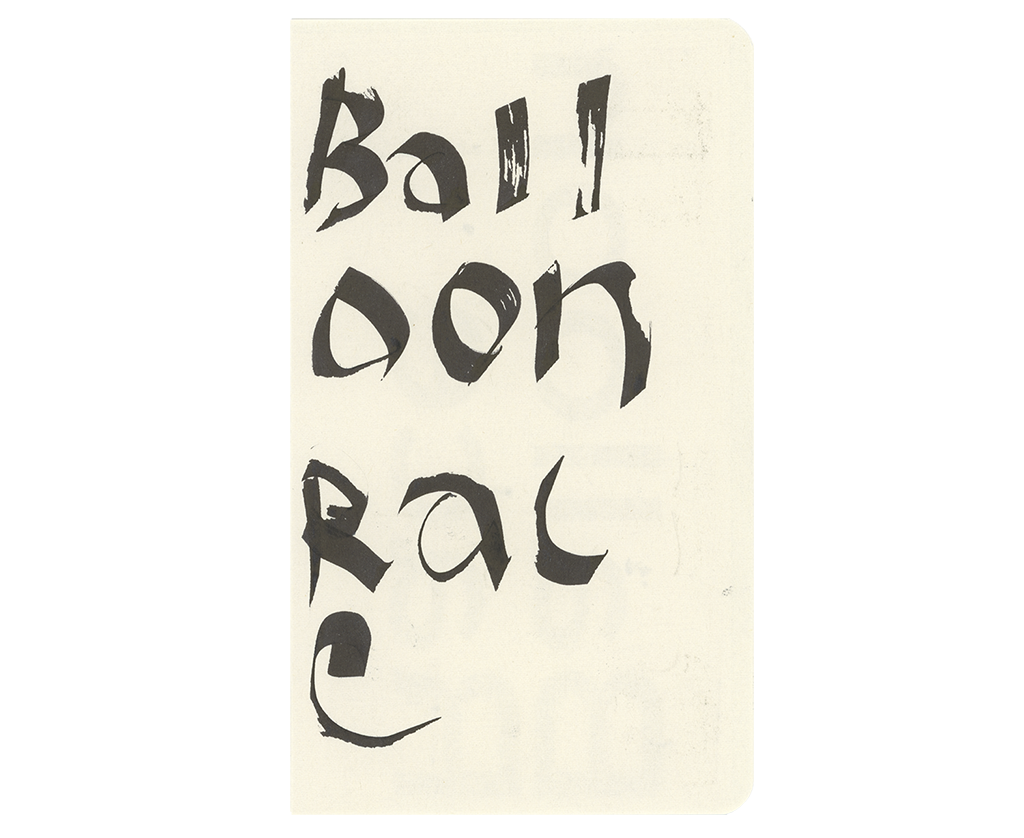 Ball
oon
Rac
e